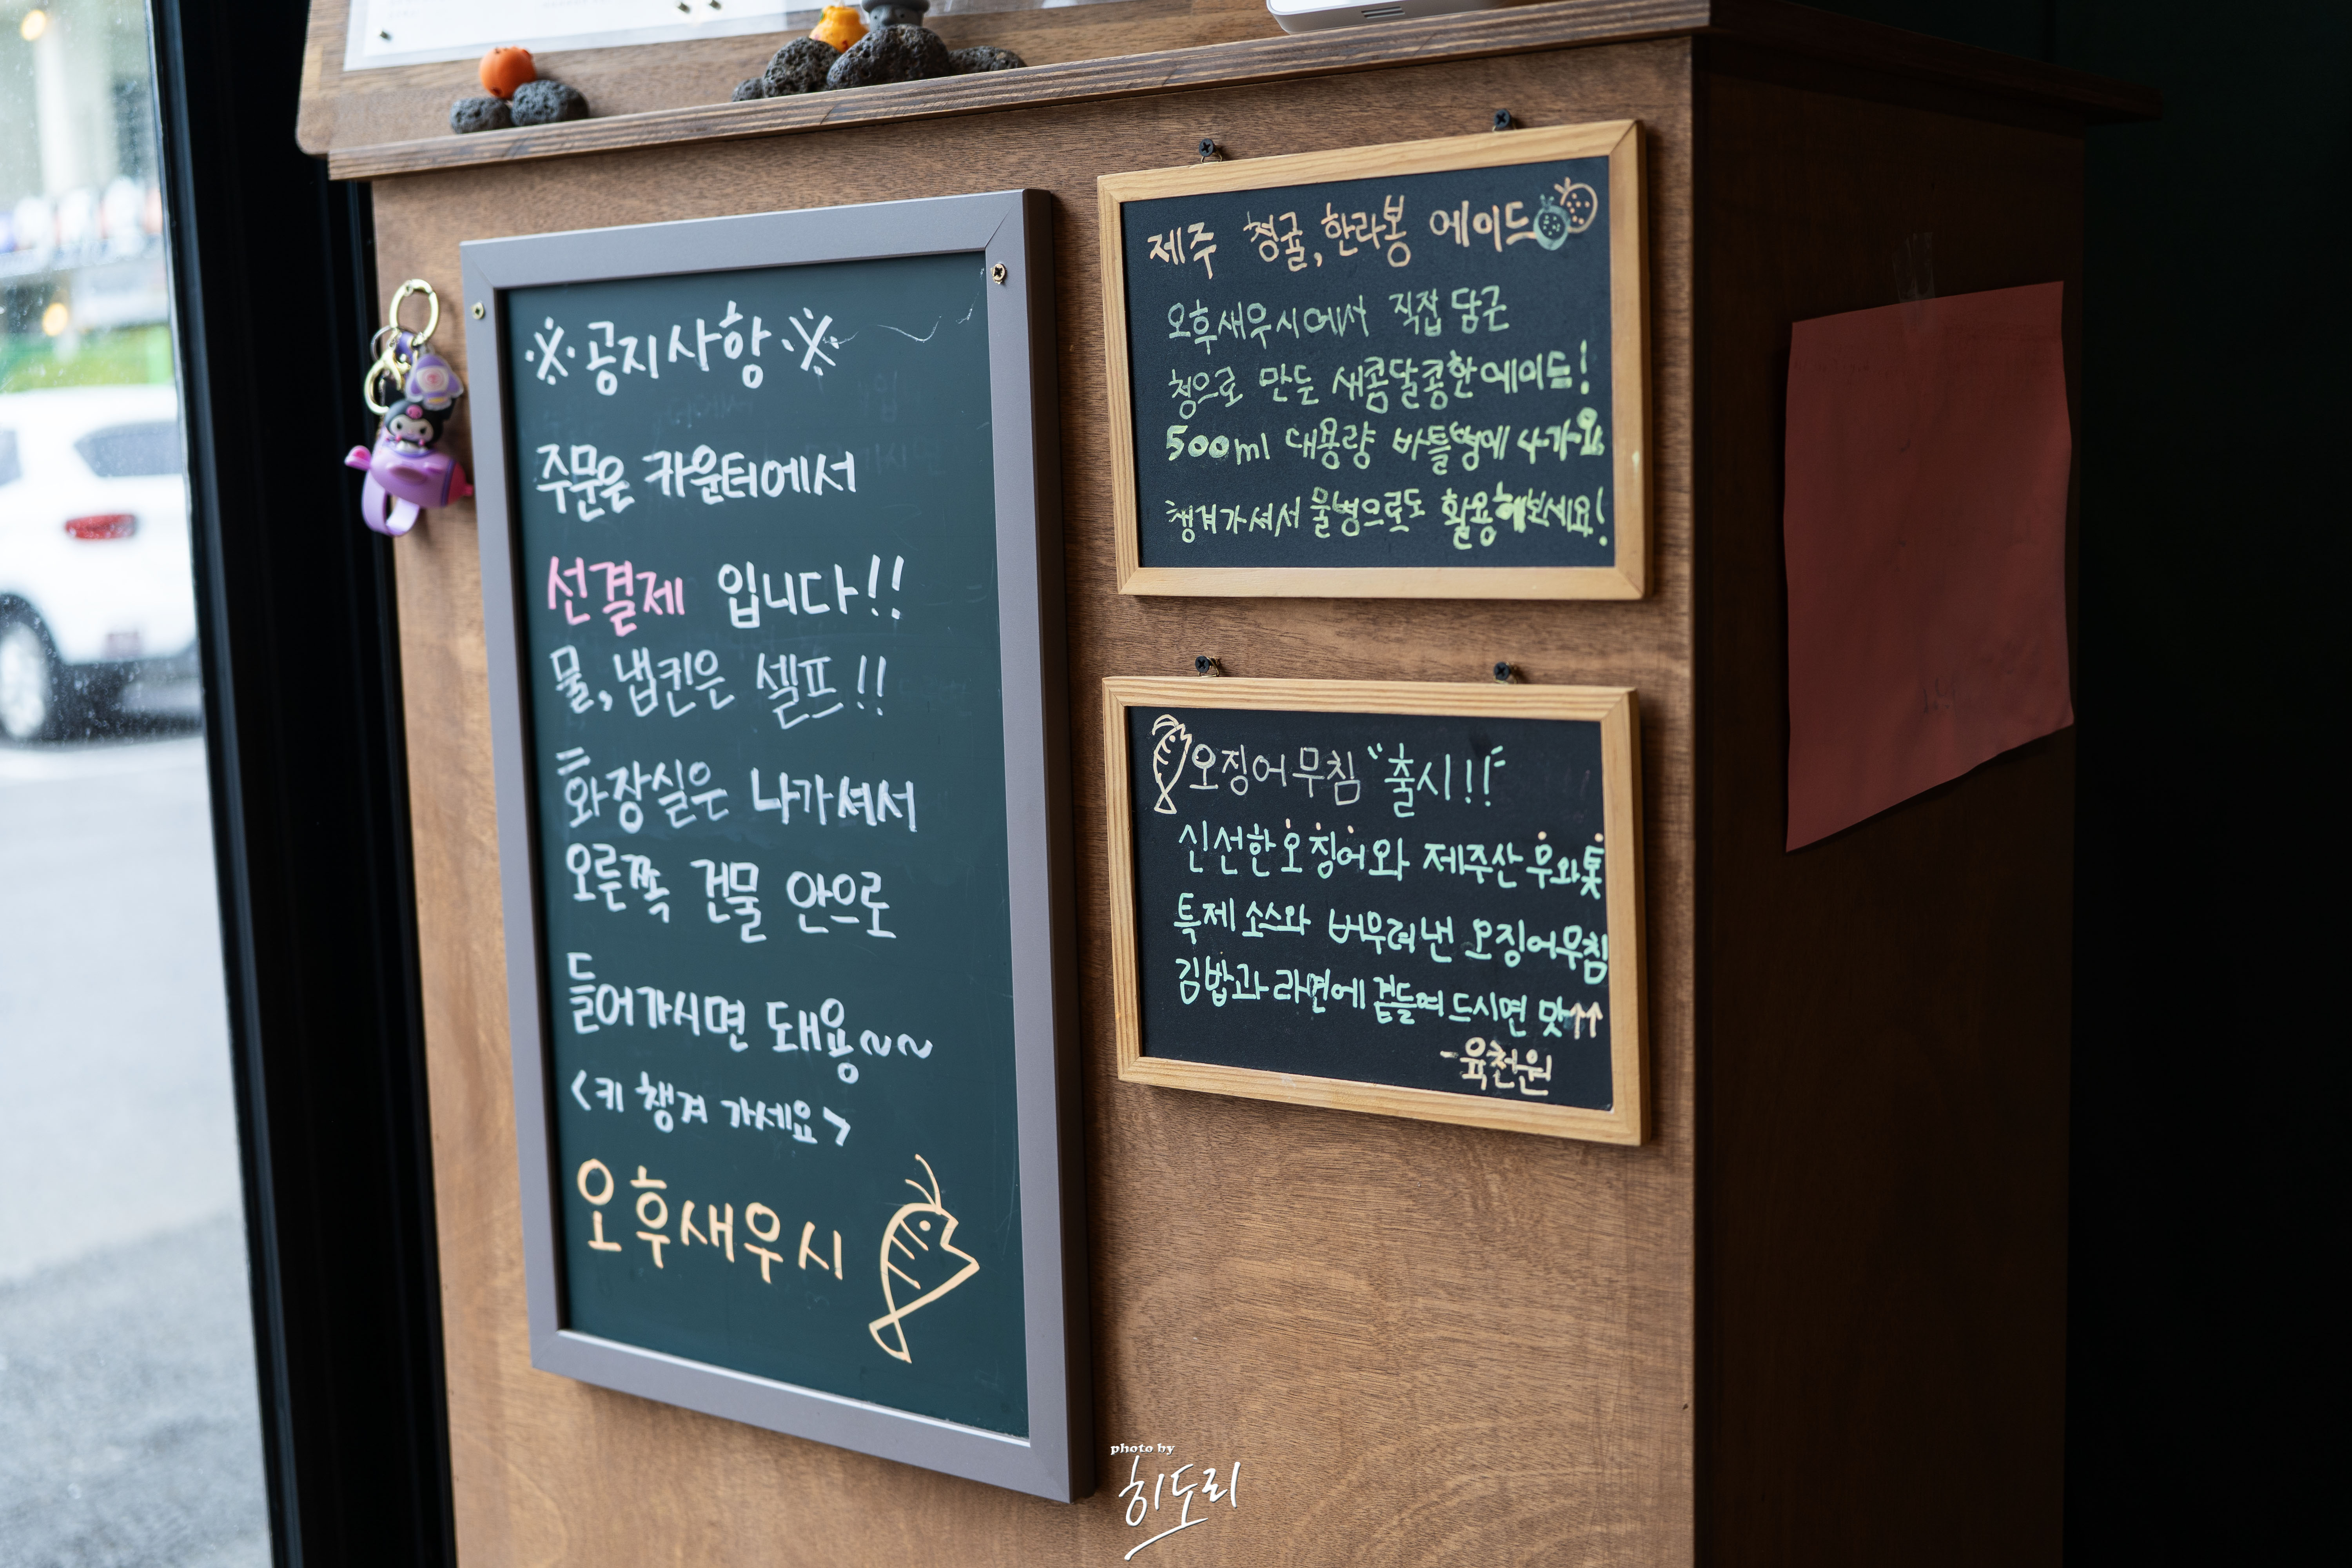 ※공지사항※
주문은 카운터에서
선결제 입니다!!
물, 냅킨은 셀프!!
화장실은 나가셔서
오른쪽 건물 안으로
들어가시면 돼용~~
<키 챙겨 가세요>
오후새우시
제주 청귤, 한라봉 에이드
오후새우시에서 직접 담근
청으로 만든 새콤달콤한 에이드!
500ml 대용량 바틀병에
챙겨가셔서 물병으로도 활용해보세요!
오징어무침 "출시!!"
신선한 오징어와 제주산 무와
특제 소스와 버무려낸 오징어무침
김밥과 라면에 곁들여 드시면 맛↑↑
-육천원
photo by
히도리